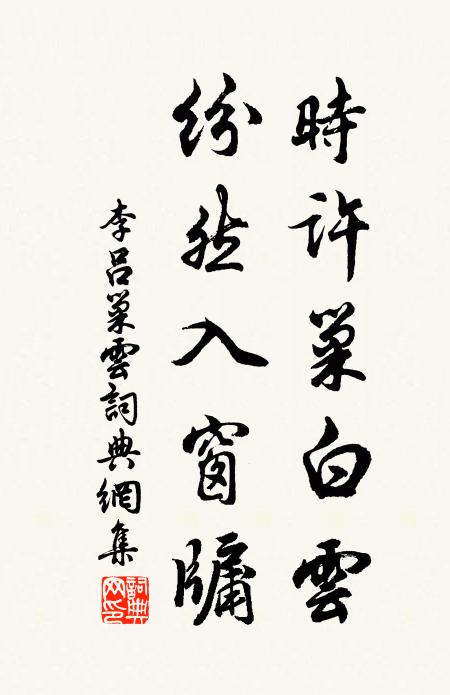 時許巢白雲
紛然入窗牖
李呂巢雲詞典網集
詞典網印